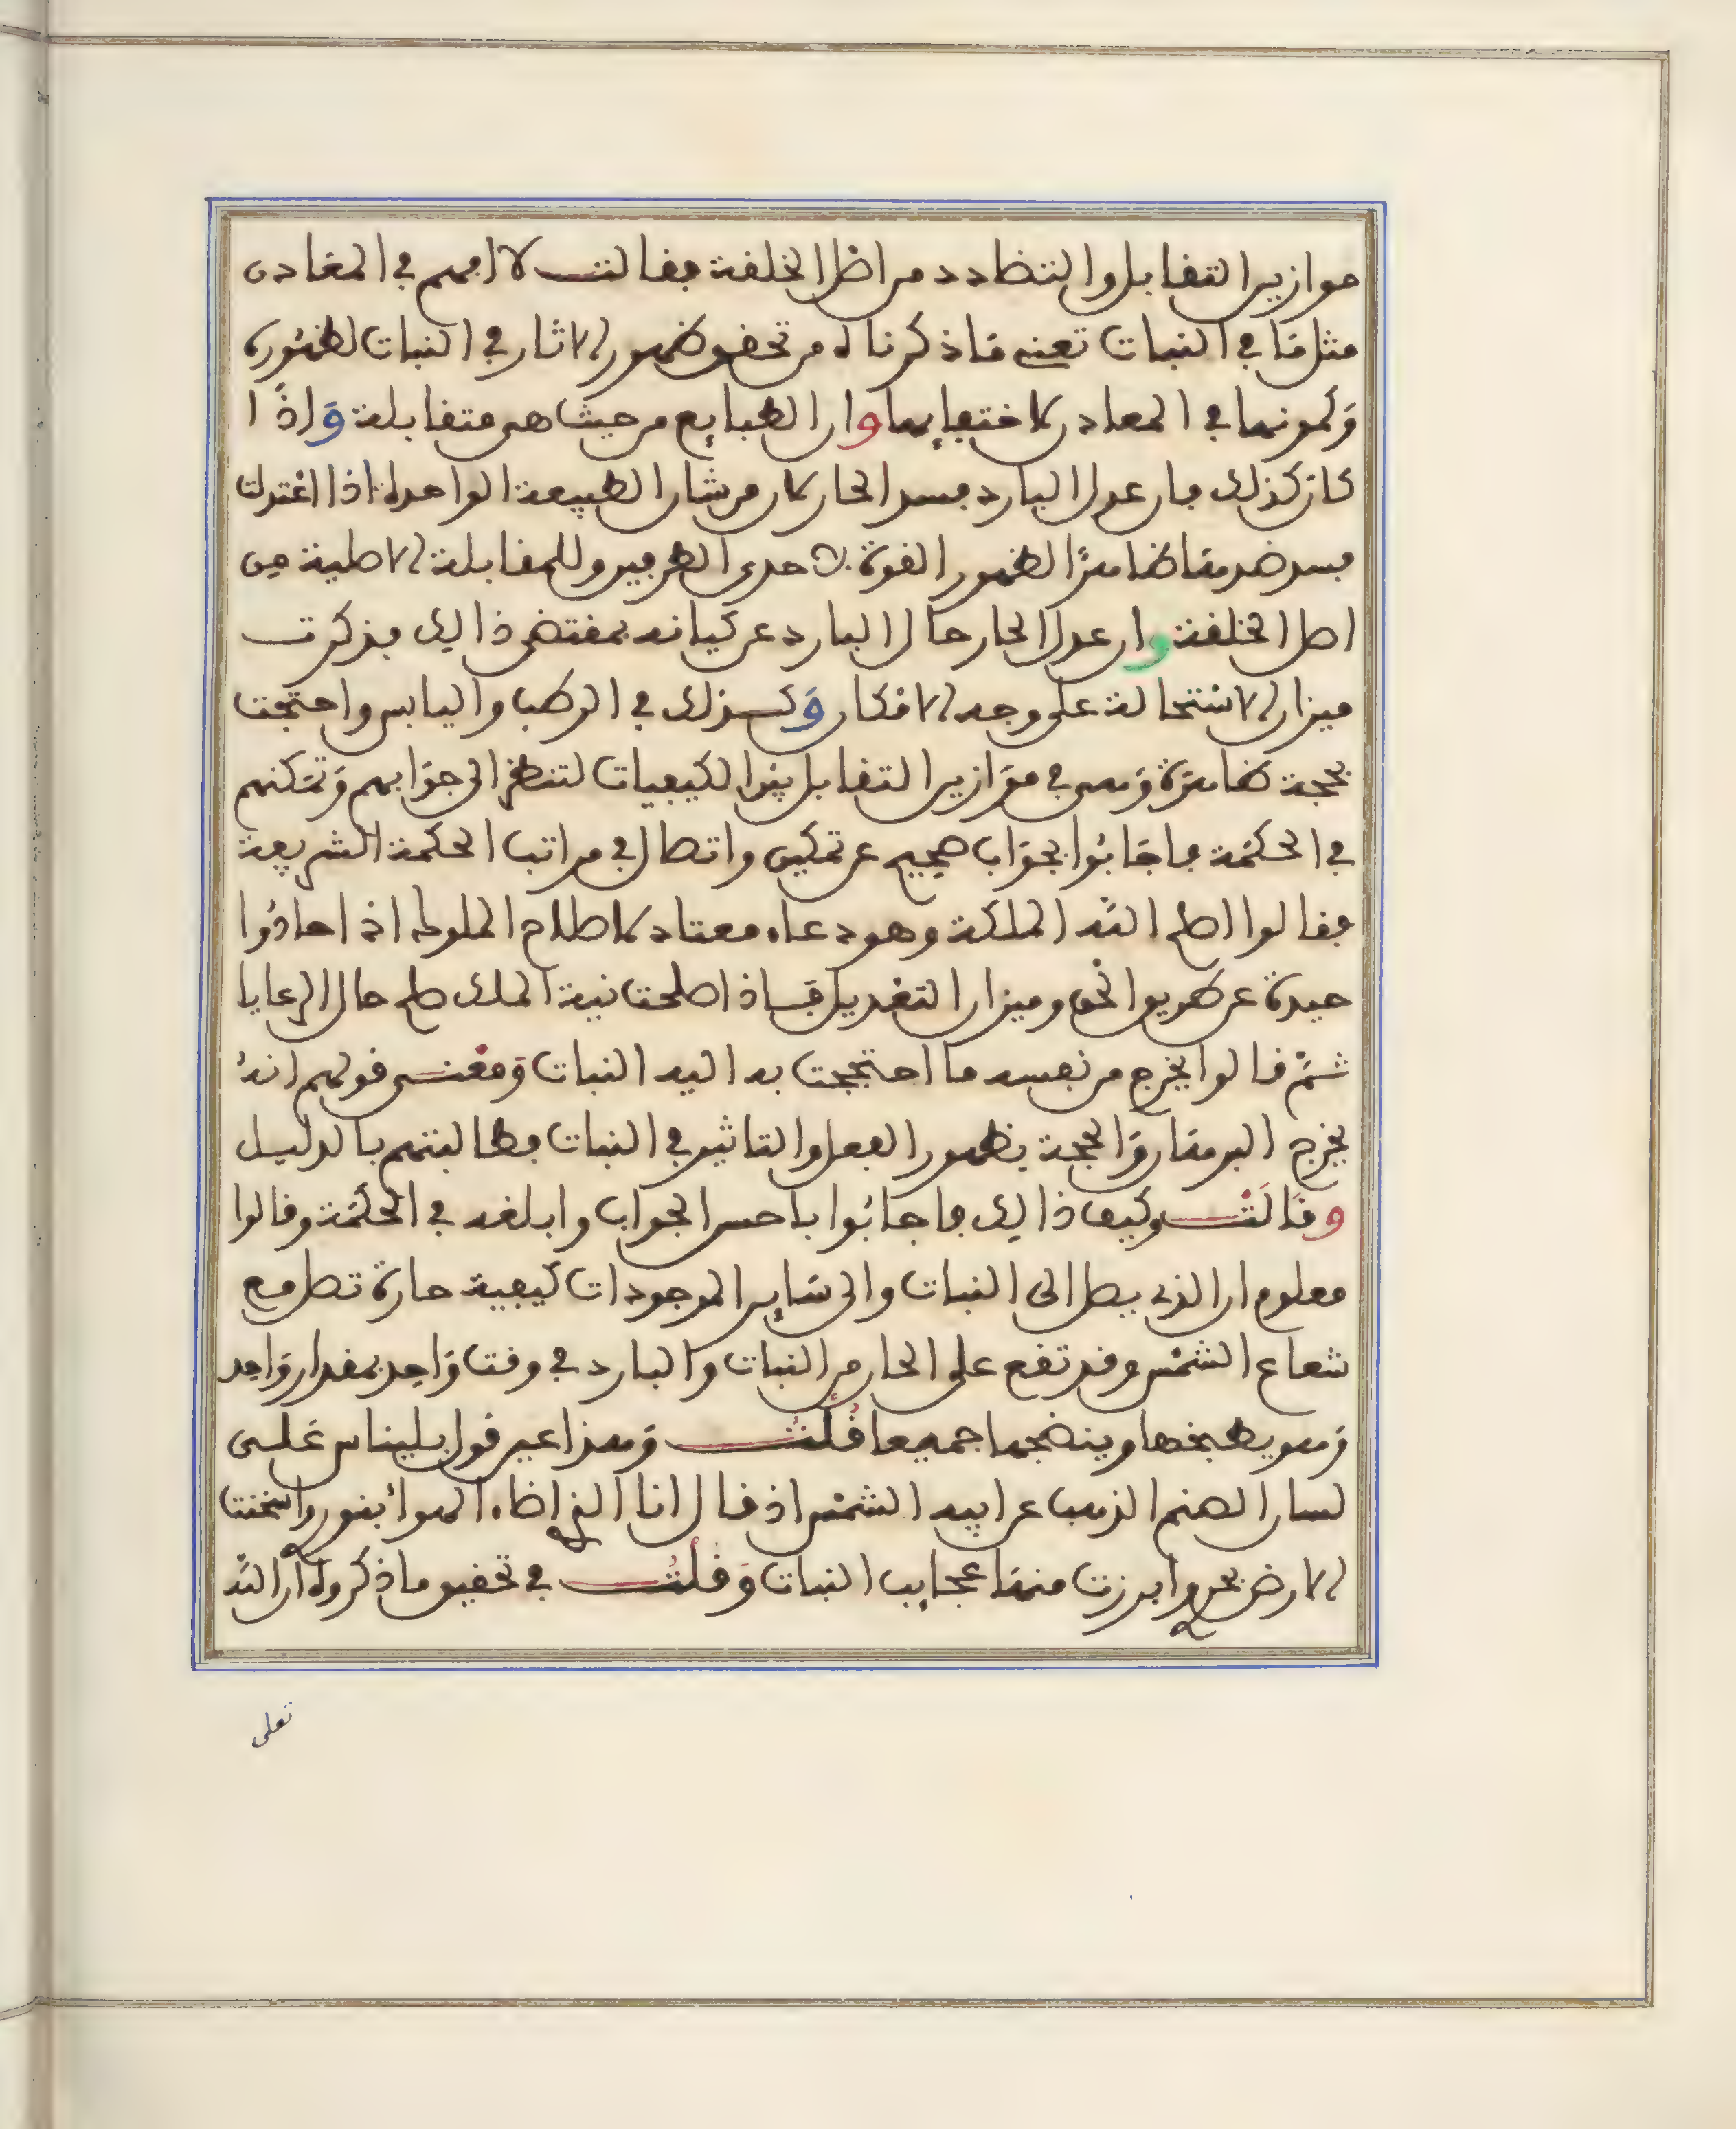 موازين التقابل والتضادد من اصل الخلقة فقالت لا افهم في المعادن
مثل ما في النبات تعني ما ذكرناه من تحقق ظهور الاثار في النبات لظهوره
وكمونها في المعادن لاختفايها وان الطبايع من حيث هي متقابلة وإذا
كان كذلك فان عدل البارد فسد الحار كان من شان الطبيعة الواحدة اذا اعتدلت
فسد ضدها ظاهرًا لظهور القوة لاحدى الطرفين وللمقابلة الاصلية من
اصل الخلقة وان عدل الحار حال البارد عن كيانه بمقتضى ذالك فذكرت
ميزان الاستحالة على وجه الامكان وكذلك في الرطب واليابس واحتجت
بحجة ظاهرة وهي في موازين التقابل بين الكيفيات لتنظر الى جوابهم وتمكنهم
في الحكمة فاجابوا بجواب صحيح عن تمكين واتصال في مراتب الحكمة الشريفة
فقالوا اصلح الله الملكة وهو دعاء معتاد لاصلاح الملوك اذا حادوا
حيدة عن طريق الحق وميزان التعديل فاذا صلحت نية الملك صلح حال الرعايا
ثم قالوا يخرج من نفسه ما احتججت به اليه النبات ومعنى قولهم انه
يخرج البرهان والحجة بظهور الفعل والتاثير في النبات فطالبتهم بالدليل
وقالت وكيف ذالك فاجابوا باحسن الجواب وابلغه في الحكمة وقالوا
معلوم ان الذي يصل الى النبات والى ساير الموجودات كيفية حارة تصل مع
شعاع الشمس وقد تقع على الحار من النبات والبارد في وقت واحد بمقدار واحد
وهو يطبخها وينضجها جميعا قلت وهذا عين قول بليناس على
لسان الصنم الذهب عن ابيه الشمس اذ قال انا الذي اضاء الهواء بنوري واسخنت
الارض بحري وابرزت منها عجايب النبات وقلت في تحقيق ما ذكروه ان الله
تعلى